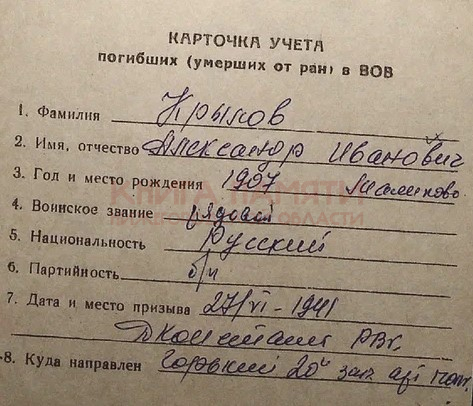 КАРТОЧКА УЧЕТА
погибших (умерших от ран) в ВОВ
1. Фамилия Крылов
2. Имя, отчество Александр Иванович
3. Год и место рождения 1907
КНИГА ПАМЯТИ
4. Воинское звание рядовой
5. Национальность Русский
6. Партийность б/п
7. Дата и место призыва 27/VI - 1941
РВк.
8. Куда направлен Горький 20й зап. арт полк